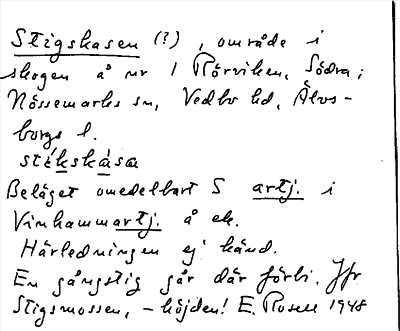 Stigskasen (?), område i
skogen å nr 1 Rörviken, Södra;
Nössemarks sn, Vedbo hd, Älvs-
borgs l.
stékskàsa
Beläget omedelbart S artj. i
Vinhammartj. å ek.
Härledningen ej känd.
En gångstig går där förbi. Jfr
Stigsmossen, -höjden! E. Rosell 1948